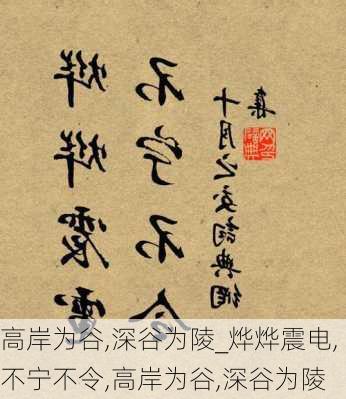 烨烨震電
不宁不令
集十月之交詞典網
高岸为谷,深谷为陵_烨烨震电,
不宁不令,高岸为谷,深谷为陵